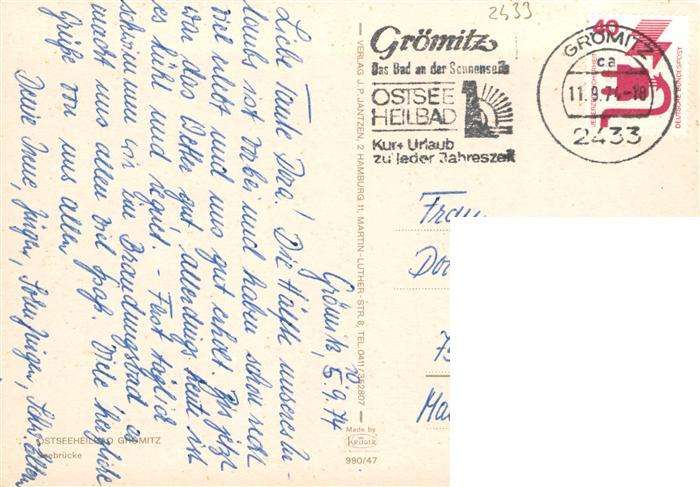 2433
Grömitz
Das Bad an der Sonnenseite
OSTSEE
HEILBAD
Kur + Urlaub
zu jeder Jahreszeit
GRÖMITZ
ca
11.9.74-18
2433
40
DEUTSCHE BUNDESPOST
Grömitz, 5.9.74
Liebe Tante Dora! Die Hälfte unseres Ur-
laubs ist vorbei und haben schon recht
viel und uns gut erholt. Bis jetzt
war das Wetter gut allerdings heut ist
es kühl und regnet. Fast täglich
schwimmen wir im Brandungsbad es
macht uns allen viel Spaß. Viele herzliche
Grüße von uns allen
Deine Jürgen,
VERLAG J. P. JANTZEN, 2 HAMBURG 11, MARTIN-LUTHER-STR. 8, TEL. 0411/362807
Frau
Made by
KRÜGER
990/47
OSTSEEHEILBAD GRÖMITZ
Seebrücke